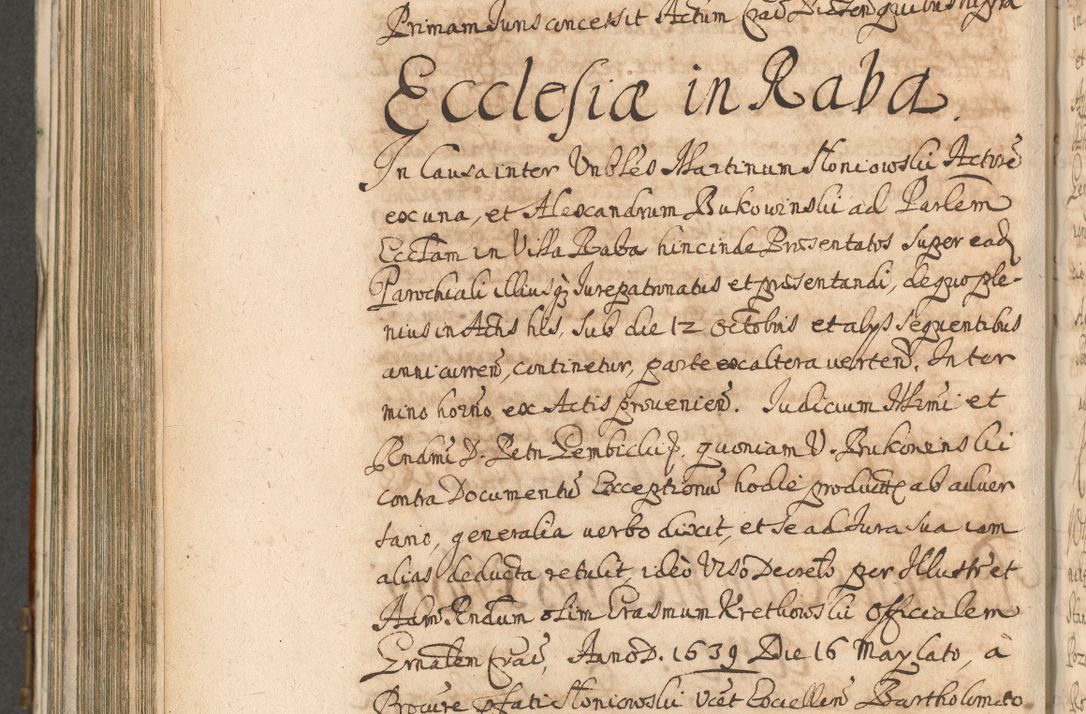 Primam Juris concessit Actum Crac̄ Die
Ecclesiæ in Raba.
In Causa inter Vnbles Martinum Słoniowski Actorē
ex una, et Alexandrum Bukowinski ad Parlem
Ecctam in Villa Raba hincinde Præsentatos super ead
Parochiali illiusq Jurepatronatus et præsentandi, de quo ple-
nius in Actis his, sub die 12 Octobris et alys sequentibus
anni curren, continetur, parte ex altera verten. In ter
mino horno ex Actis provenien. Judicium Illrmi et
Rndmi D. Petri Gembicki, quoniam V. Bukowenski
contra Documentū Exceptionū hodie product ab adver
sario, generalia verbo dixit, et se ad Jura sua iam
alias deducta retulit, ideò Viso Decreto per Illustr et
Adm Rndum olim Erasmum Kretkowski Officialem
Gnalem Crac, Anno D. 1639 Die 16 May lato, à
Procūre pfati Słoniowski Vcēt Excellen Bartholomæo